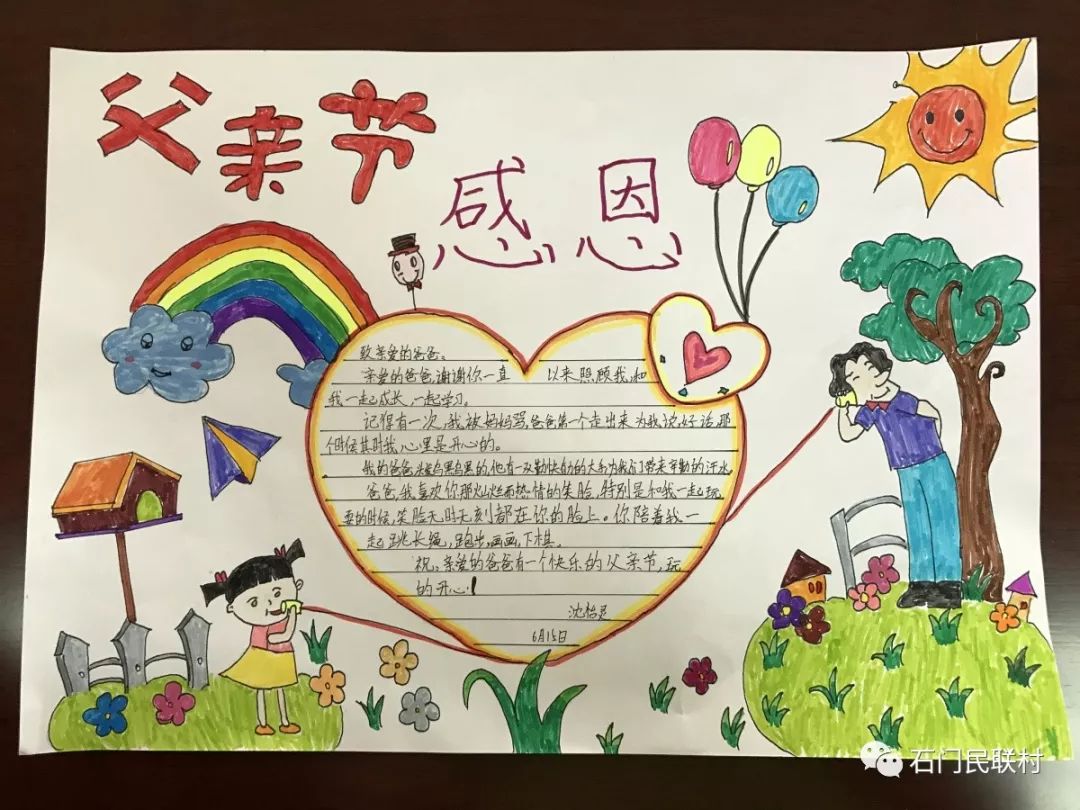 父亲节
感恩
致亲爱的爸爸。
亲爱的爸爸，谢谢你一直 以来照顾我，和
我一起成长，一起学习。
记得有一次，我被妈妈骂，爸爸第一个走出来为我说好话，那
个时候其时我心里是开心的。
我的爸爸，黑黑的，他有一双勤快的大手为我们带来辛勤的汗水。
爸爸，我喜欢你那灿烂而热情的笑脸，特别是和我一起玩
耍的时候，笑脸无时无刻都在你的脸上。你陪着我一
起跳长绳，跑步，画画，下棋。
祝：亲爱的爸爸有一个快乐的父亲节，玩
的开心！
沈怡
6月15日
石门民联村